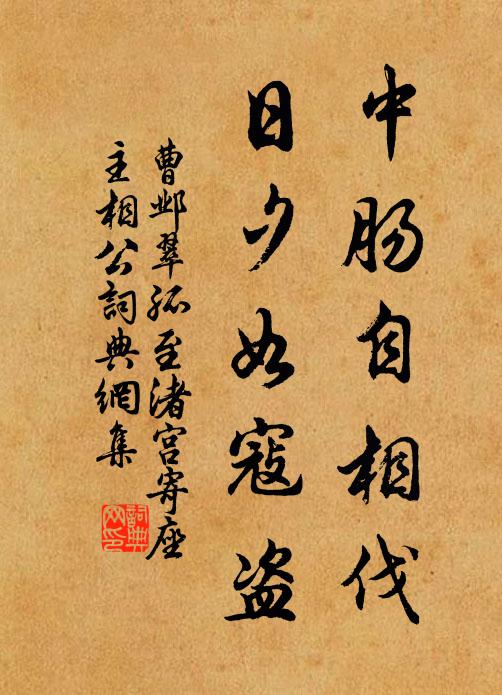 中肠自相伐
日夕如寇盗
曹邺翠孤至渚宫寄座
主相公詞典網集
詞典网印